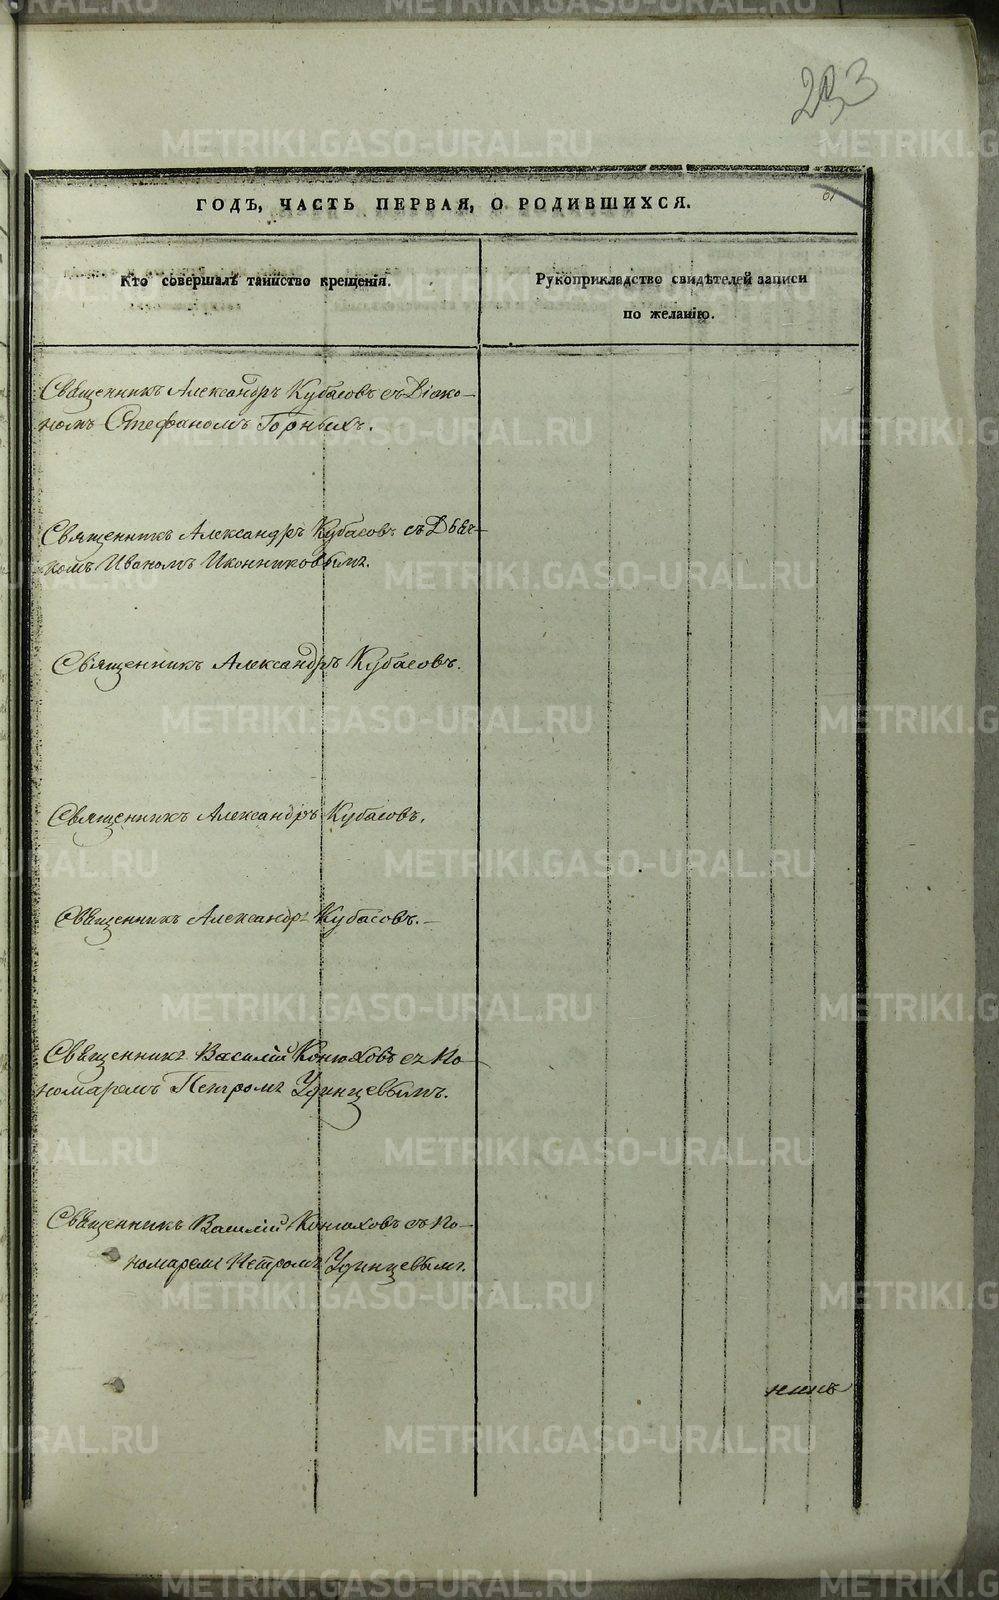 233
61
ГОДЪ, ЧАСТЬ ПЕРВАЯ, О РОДИВШИХСЯ.
Кто совершалъ таинство крещенія.
Рукоприкладство свидѣтелей записи
по желанію.
Священникъ Александръ Кубасовъ съ Діако-
номъ Стефаномъ Горныхъ.
Священникъ Александръ Кубасовъ съ Дьяч-
комъ Иваномъ Иконниковымъ.
Священникъ Александръ Кубасовъ.
Священникъ Александръ Кубасовъ.
Священникъ Александръ Кубасовъ.
Священникъ Василій Конюховъ съ По-
номаремъ Петромъ Удинцевымъ.
Священникъ Василій Конюховъ съ По-
номаремъ Петромъ Удинцевымъ.
METRIKI.GASO-URAL.RU